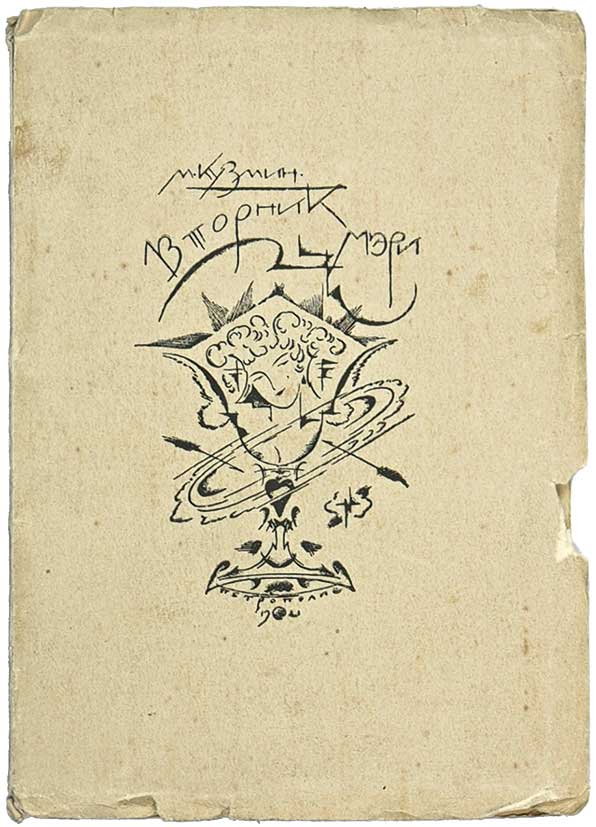 М. КУЗМИН.
ВТОРНИК
МЭРИ
ПЕТРОПОЛИС